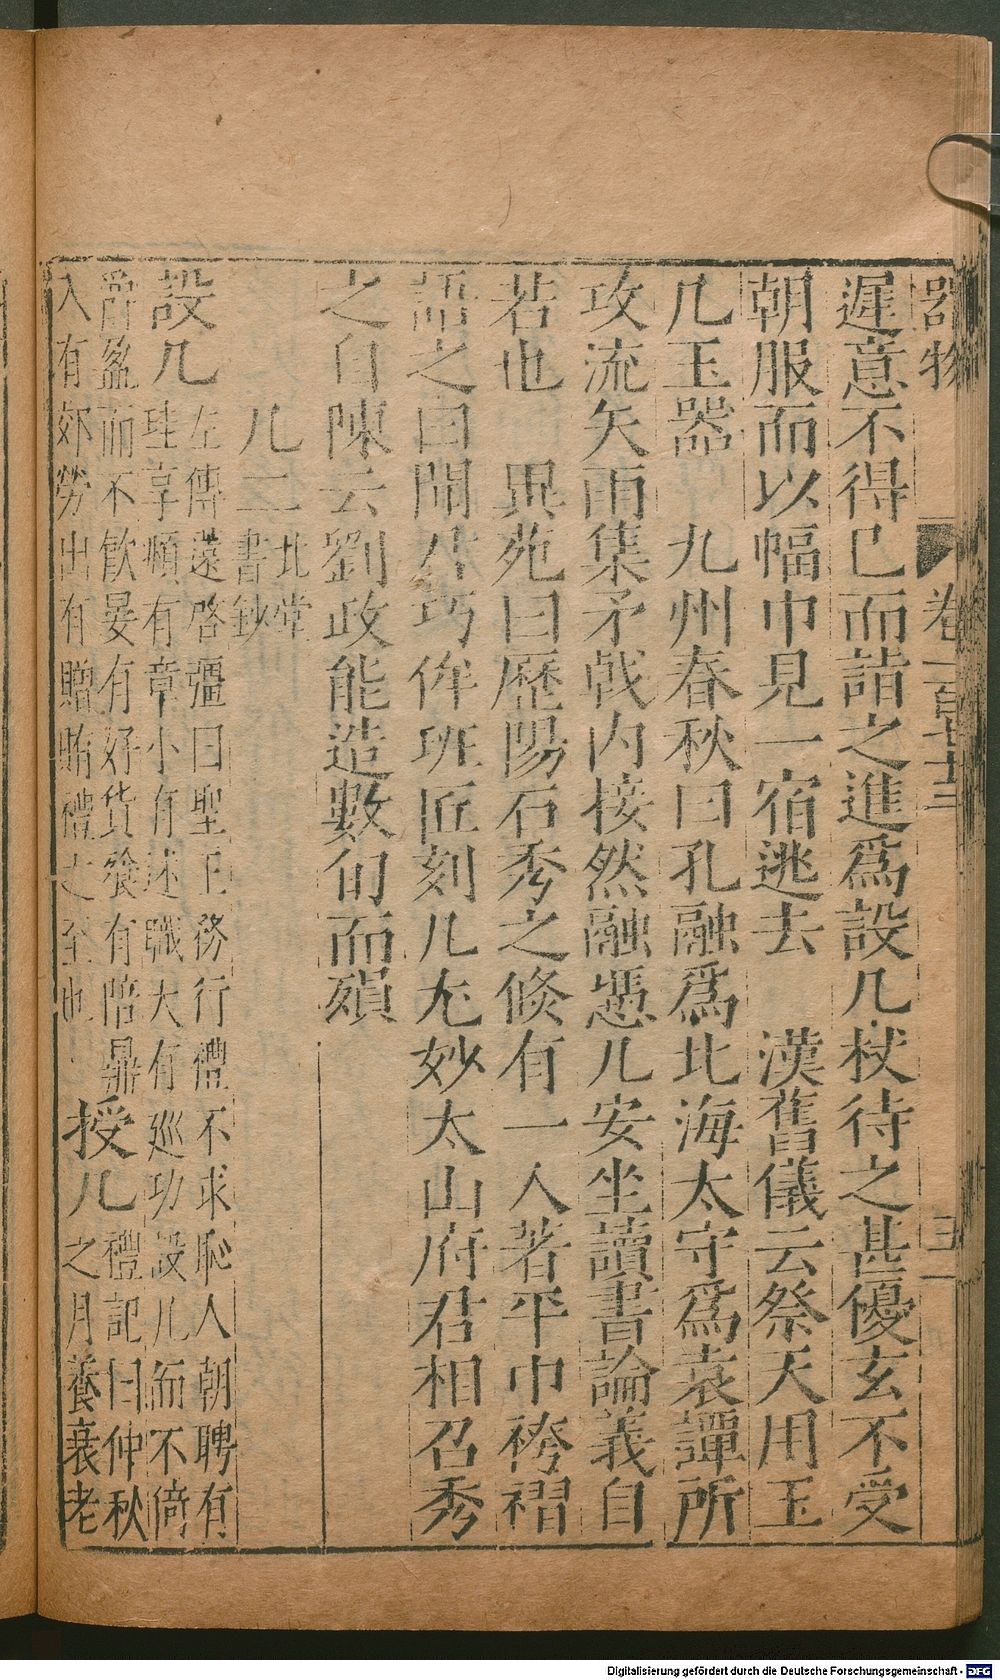 器物 卷一百十三 三一
遲意不得已而詣之進爲設几杖待之甚優玄不受
朝服而以幅巾見一宿逃去 漢舊儀云祭天用玉
几玉器 九州春秋曰孔融爲北海太守爲袁譚所
攻流矢雨集矛戟内接然融憑几安坐讀書論義自
若也 異苑曰歷陽石秀之倐有一人著平巾袴褶
語之曰聞君巧侔班匠刻几尤妙太山府君相召秀
之自陳云劉政能造數旬而殞
几二
北堂
書鈔
設几
左傳薳啓彊曰聖王務行禮不求恥人朝聘有
珪享頫有章小有述職大有巡功設几而不倚
爵盈而不飲晏有好貨飱有陪鼎
入有郊勞出有贈賄禮之至也
授几
禮記曰仲秋
之月養衰老
Digitalisierung gefördert durch die Deutsche Forschungsgemeinschaft - DFG